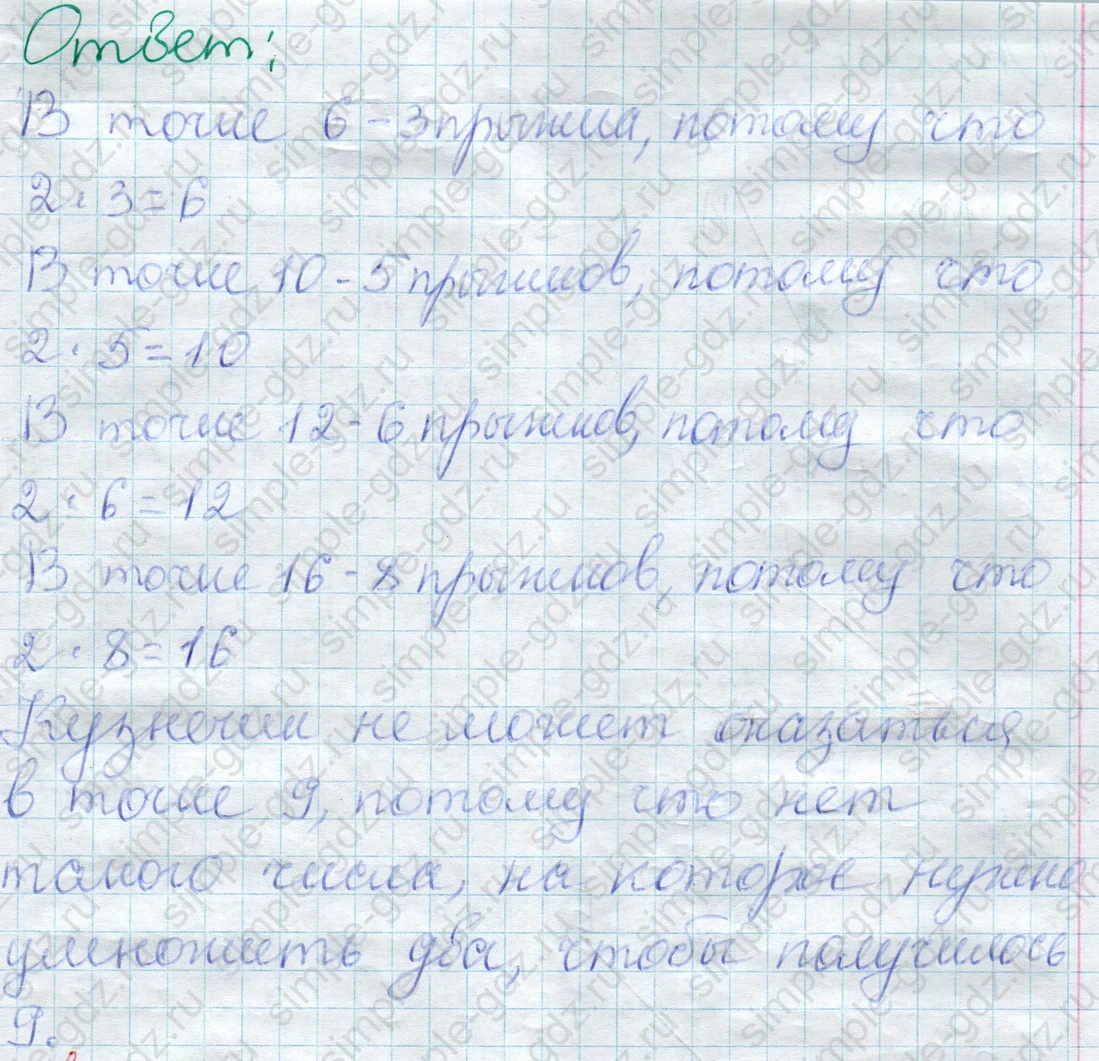 Ответ:
В точке 6 - 3 прыжка, потому что
2 · 3 = 6
В точке 10 - 5 прыжков, потому что
2 · 5 = 10
В точке 12 - 6 прыжков, потому что
2 · 6 = 12
В точке 16 - 8 прыжков, потому что
2 · 8 = 16
Кузнечик не может оказаться
в точке 9, потому что нет
такого числа, на которое нужно
умножить два, чтобы получилось
9.
simple-gdz.ru